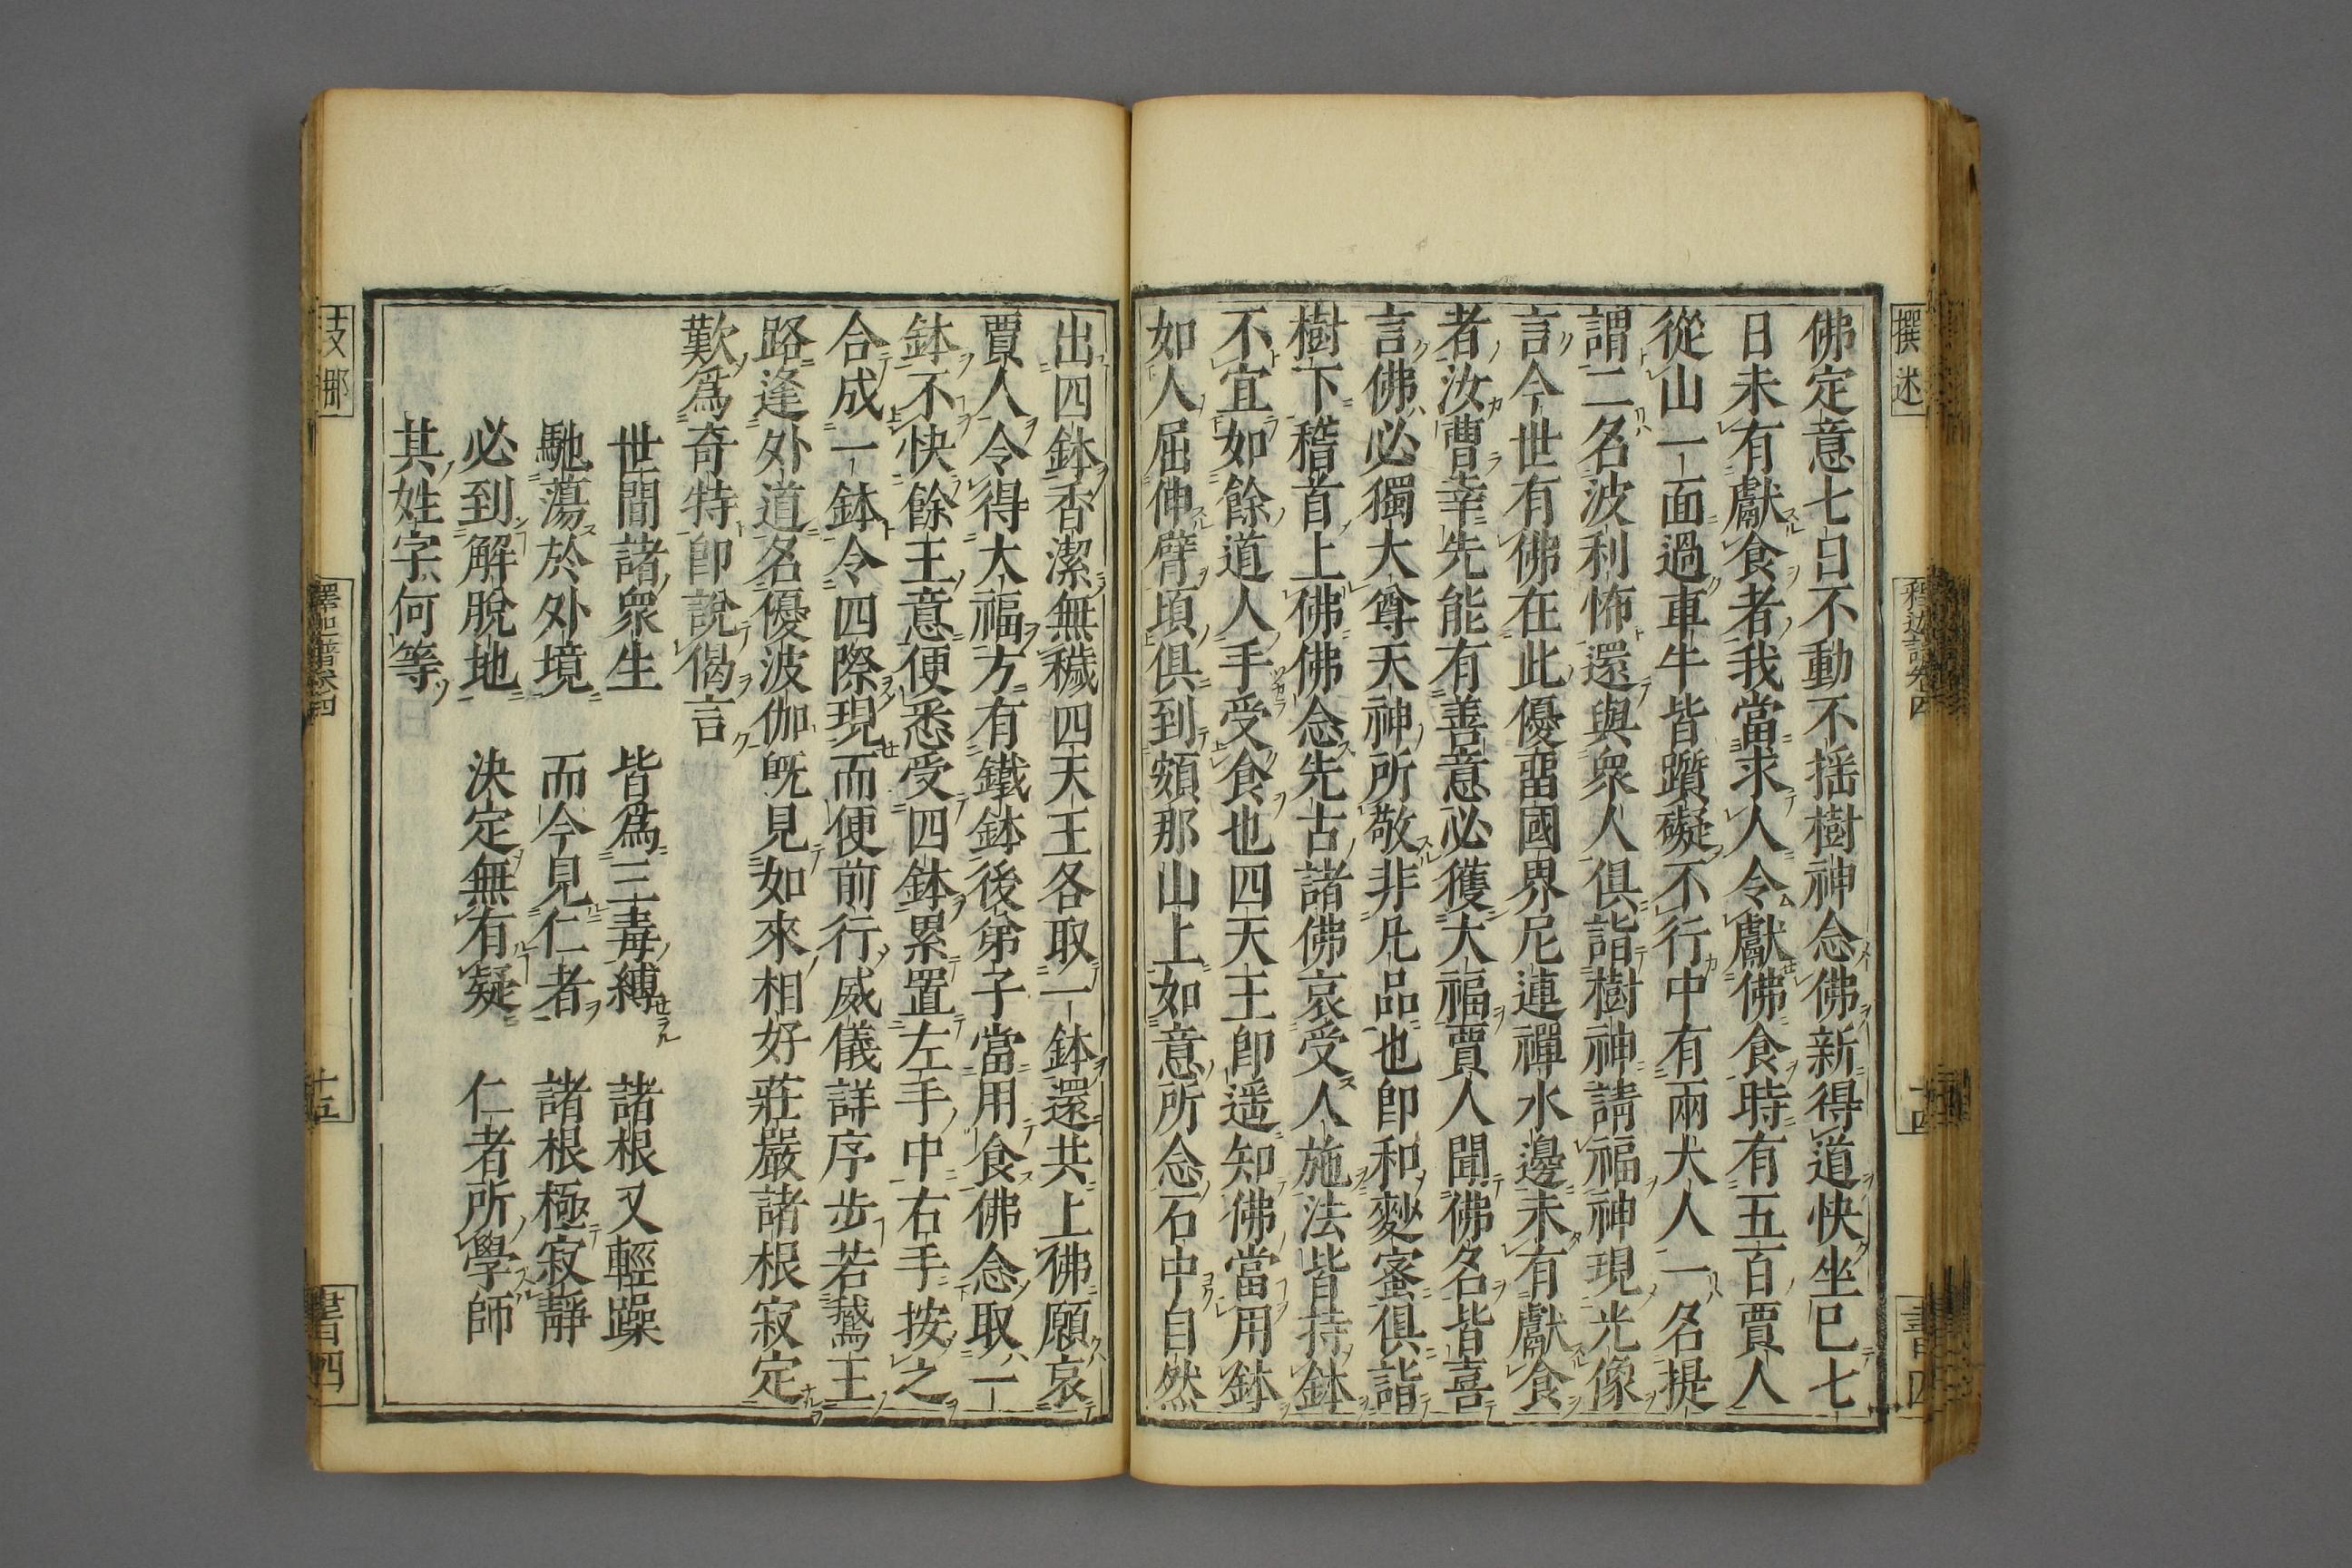 撰述
釋迦譜卷四
十四
書四
佛定意七日不動不揺樹神念佛新得道快坐已七
日未有獻食者我當求人令獻佛食時有五百賈人
從山一面過車牛皆躓礙不行中有兩大人一名提
謂二名波利怖還與衆人俱詣樹神請福神現光像
言今世有佛在此優畱國界尼連禪水邊未有獻食
者汝曹幸先能有善意必獲大福賈人聞佛名皆喜
言佛必獨大尊天神所敬非凡品也卽和麨蜜俱詣
樹下稽首上佛佛念先古諸佛哀受人施法皆持鉢
不宜如餘道人手受食也四天王卽遥知佛當用鉢
如人屈伸臂頃俱到頞那山上如意所念石中自然
出四鉢香潔無穢四天王各取一鉢還共上佛願哀
賈人令得大福方有鐵鉢後弟子當用食佛念取一
鉢不快餘王意便悉受四鉢累置左手中右手按之
合成一鉢令四際現而便前行威儀詳序步若鵞王
路逢外道名優波伽旣見如來相好莊嚴諸根寂定
歎爲奇特卽說偈言
世間諸衆生　皆爲三毒縛　諸根又輕躁
馳蕩於外境　而今見仁者　諸根極寂靜
必到解脫地　決定無有疑　仁者所學師
其姓字何等
支那
釋迦譜卷四
十五
書四